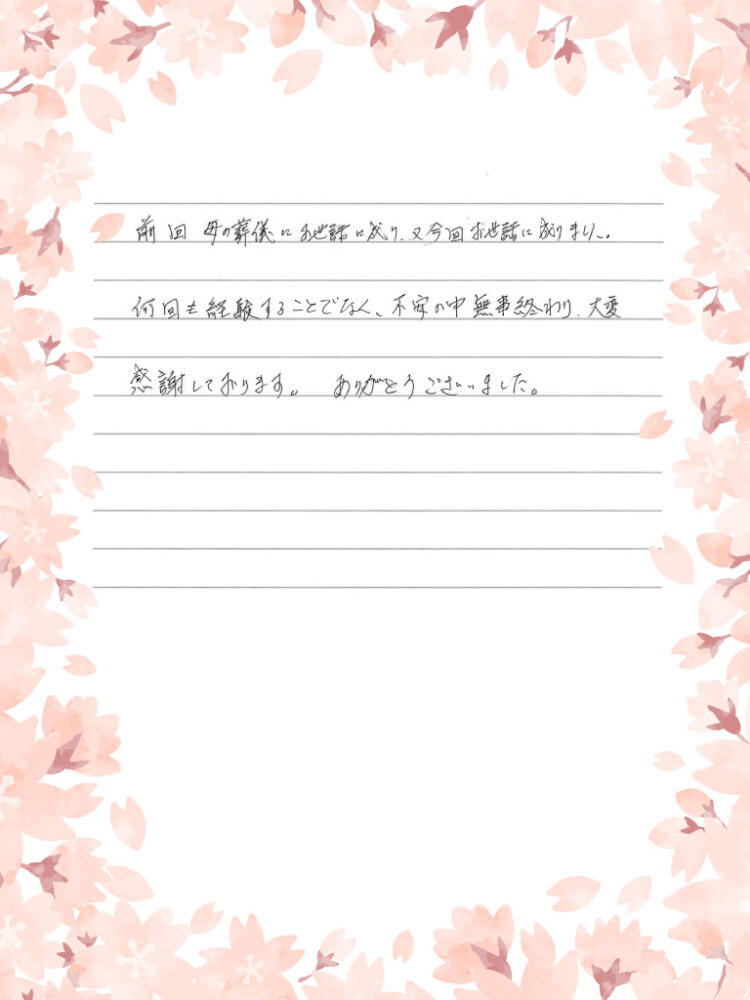 前回 母の葬儀にお世話に成り、又今回お世話に成りました。
何回も経験することでなく、不安の中無事終わり、大変
感謝しております。 ありがとうございました。